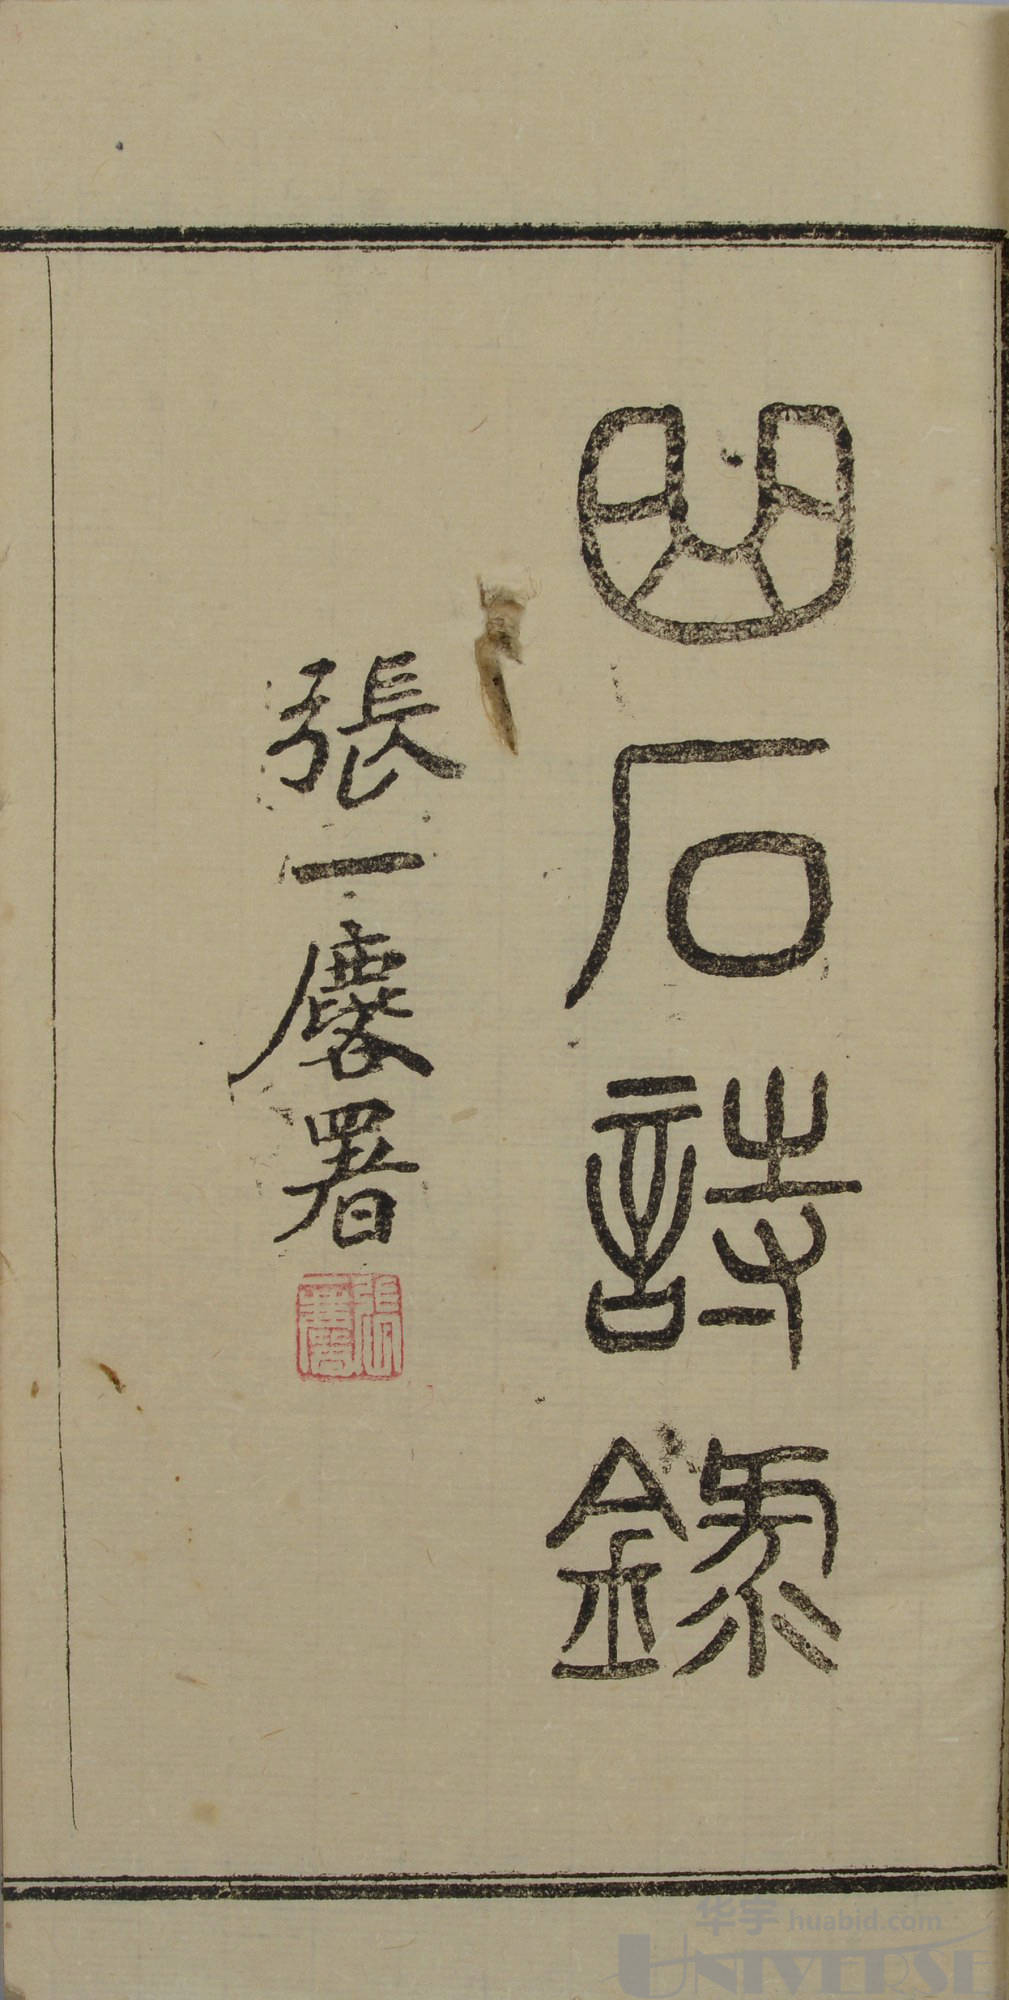 曲石詩錄
張一麐署
华宇 huabid.com
UNIVERSE